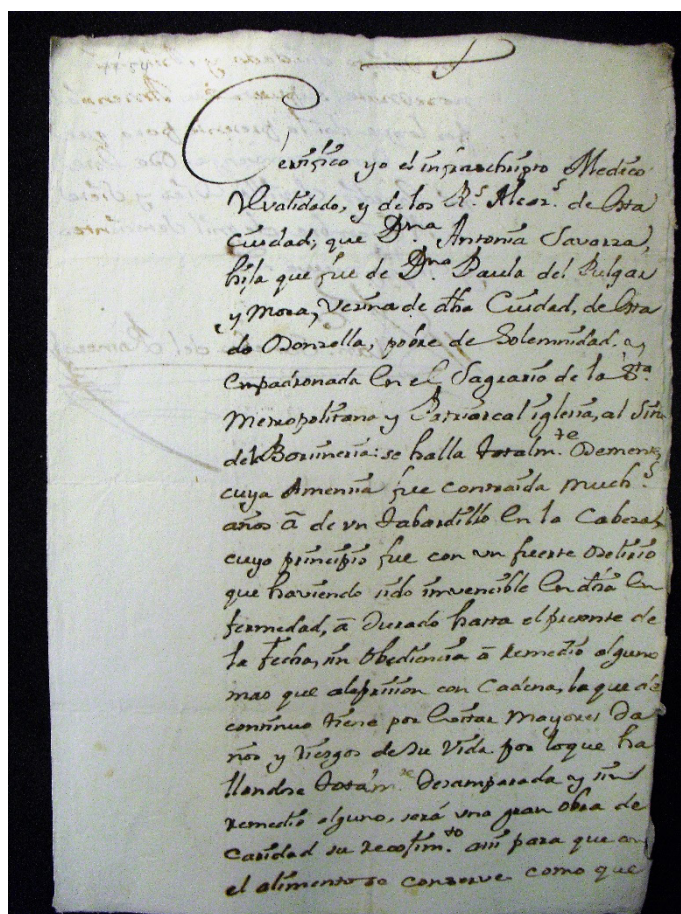 Certifico yo el infraschripto Medico
Revalidado, y de los Rs. Alcazs. de esta
Ciudad; que Dna. Antonia
hija que fue de Dna. Paula del Pulgar
y Mora, Vezina de dha Ciudad, de esta
do Donzella, pobre de Solemnidad,
empadronada en el Sagrario de la Sta.
Metropolitana y Patriarcal iglesia, al
de: se halla totalmte. Demente,
cuya Amenzia fue contraida muchs.
años â de vn tabardillo en la Cabeza,
cuyo prinzipio fue con vn fuerte delirio
que haviendo sido imvencible en dha en
fermedad, â durado hasta el presente de
la fecha, sin obediencia â remedio alguno
mas que a la prision con Cadena, la que de
continuo tiene por evitar mayores Da
ños y riezgos de su Vida por lo que ha
llandose totalmte. Desamparada y sin
remedio alguno, será vna gran obra de
Caridad su recojimto. asi para que con
el alimento se conserve como que